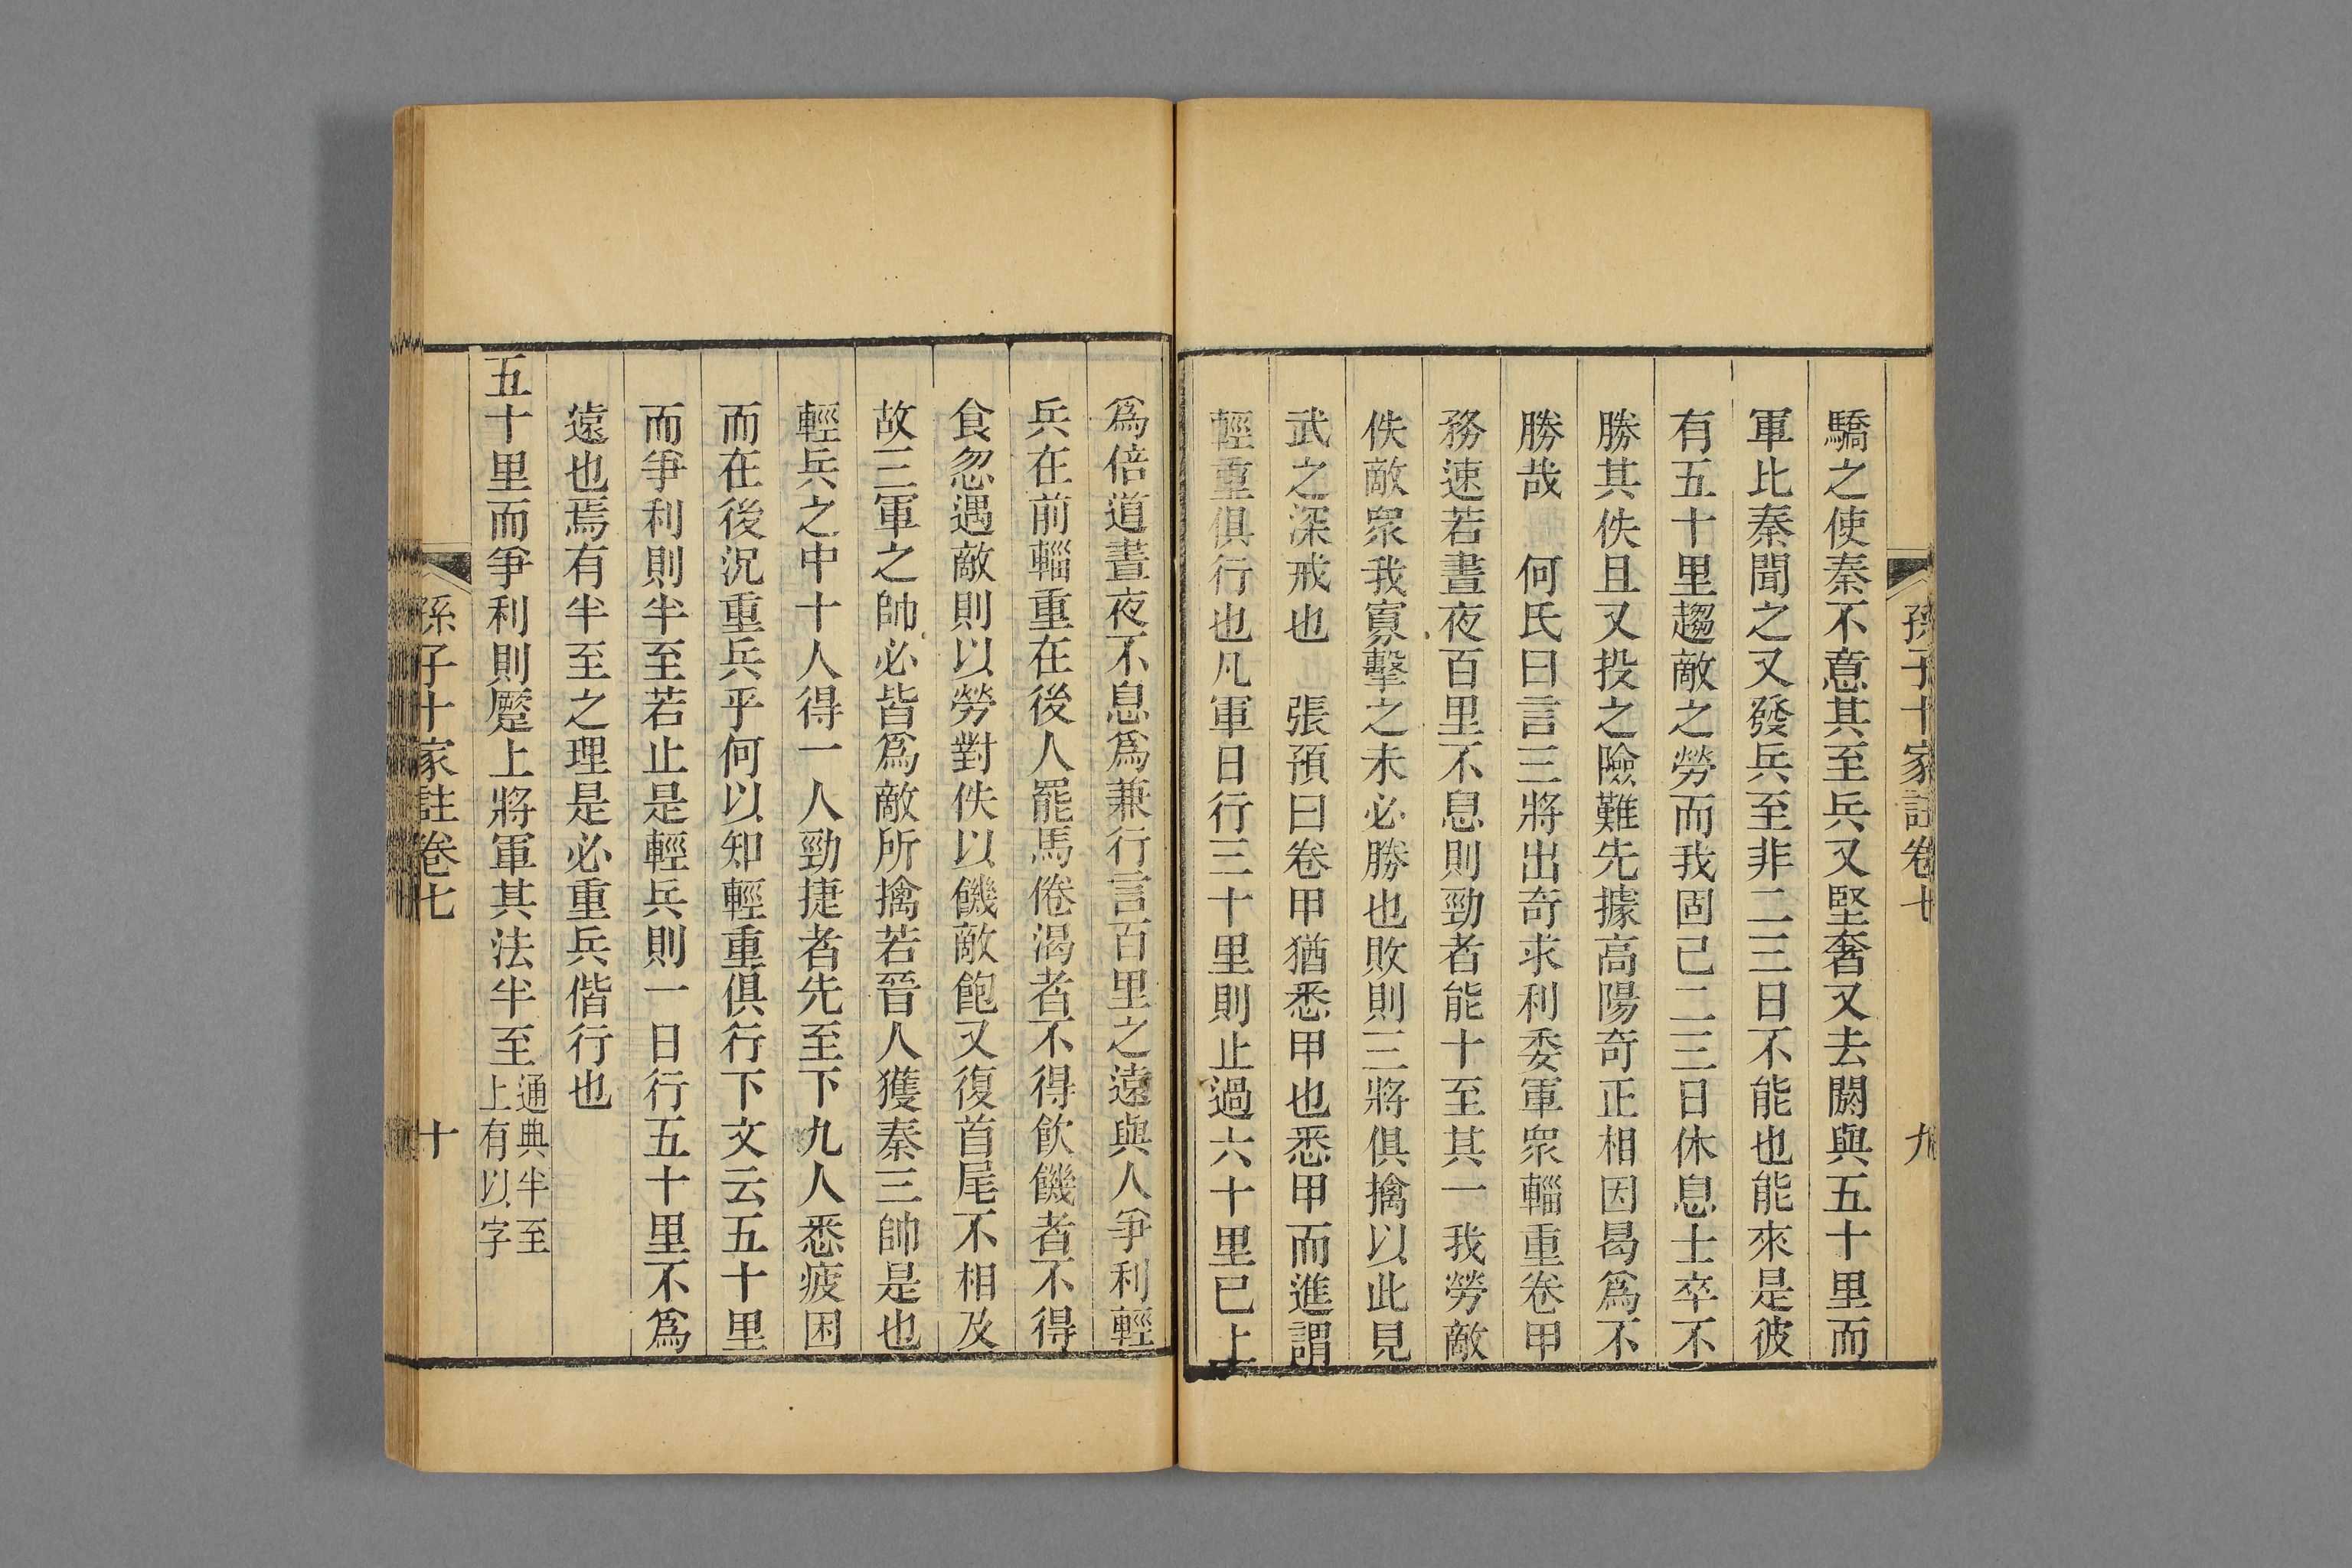 孫子十家註卷七 九
驕之使秦不意其至兵又堅奢又去閼與五十里而
軍比秦聞之又發兵至非二三日不能也能來是彼
有五十里趨敵之勞而我固已二三日休息士卒不
勝其佚且又投之險難先據高陽奇正相因曷爲不
勝哉 何氏曰言三將出奇求利委軍衆輜重卷甲
務速若晝夜百里不息則勁者能十至其一我勞敵
佚敵衆我寡擊之未必勝也敗則三將俱擒以此見
武之深戒也 張預曰卷甲猶悉甲也悉甲而進謂
輕重俱行也凡軍日行三十里則止過六十里已上
爲倍道晝夜不息爲兼行言百里之遠與人爭利輕
兵在前輜重在後人罷馬倦渴者不得飲饑者不得
食忽遇敵則以勞對佚以饑敵飽又復首尾不相及
故三軍之帥必皆爲敵所擒若晉人獲秦三帥是也
輕兵之中十人得一人勁捷者先至下九人悉疲困
而在後況重兵乎何以知輕重俱行下文云五十里
而爭利則半至若止是輕兵則一日行五十里不爲
遠也焉有半至之理是必重兵偕行也
五十里而爭利則蹷上將軍其法半至通典半至
上有以字
孫子十家註卷七 十